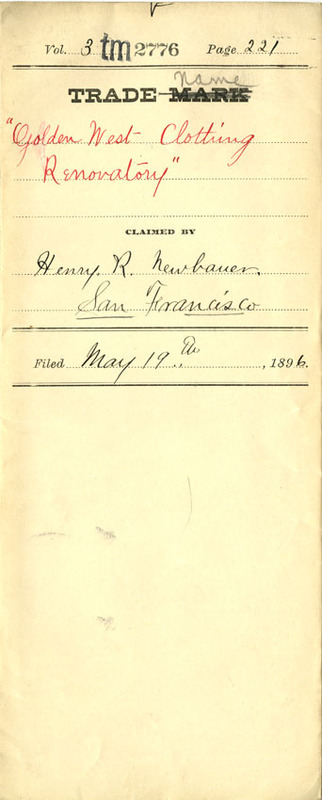 Vol. 3 tm 2776 Page 221
name
TRADE MARK
"Golden West Clothing
Renovatory"
CLAIMED BY
Henry R. Newbauer.
San Francisco
Filed May 19th, 1896.